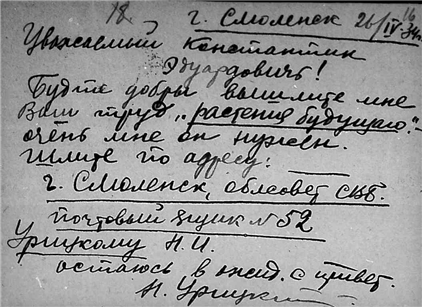 18. г. Смоленск 26/IV 34г. 16
Уважаемый Константин
Эдуардовичъ!
Будте добры вышлите мне
Ваш труд „растения будущаго.“
очень мне он нужен.
Шлите по адресу:
г. Смоленск, облсовет СВБ.
почтовый ящик № 52
Урицкому Н.И.
остаюсь в ожид. с привет.
Н. Урицкий